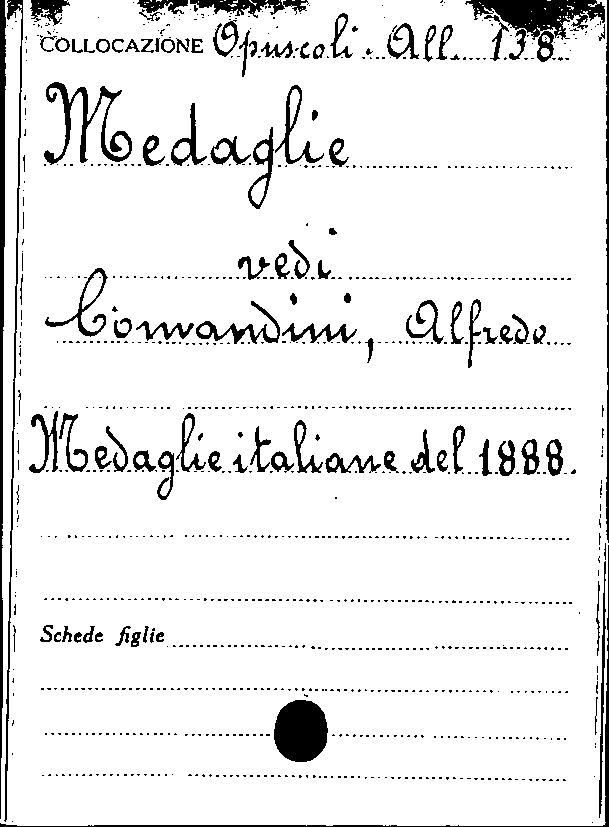 COLLOCAZIONE Opuscoli. All. 138.
Medaglie
vedi
Comandini, Alfredo
Medaglie italiane del 1888.
Schede figlie